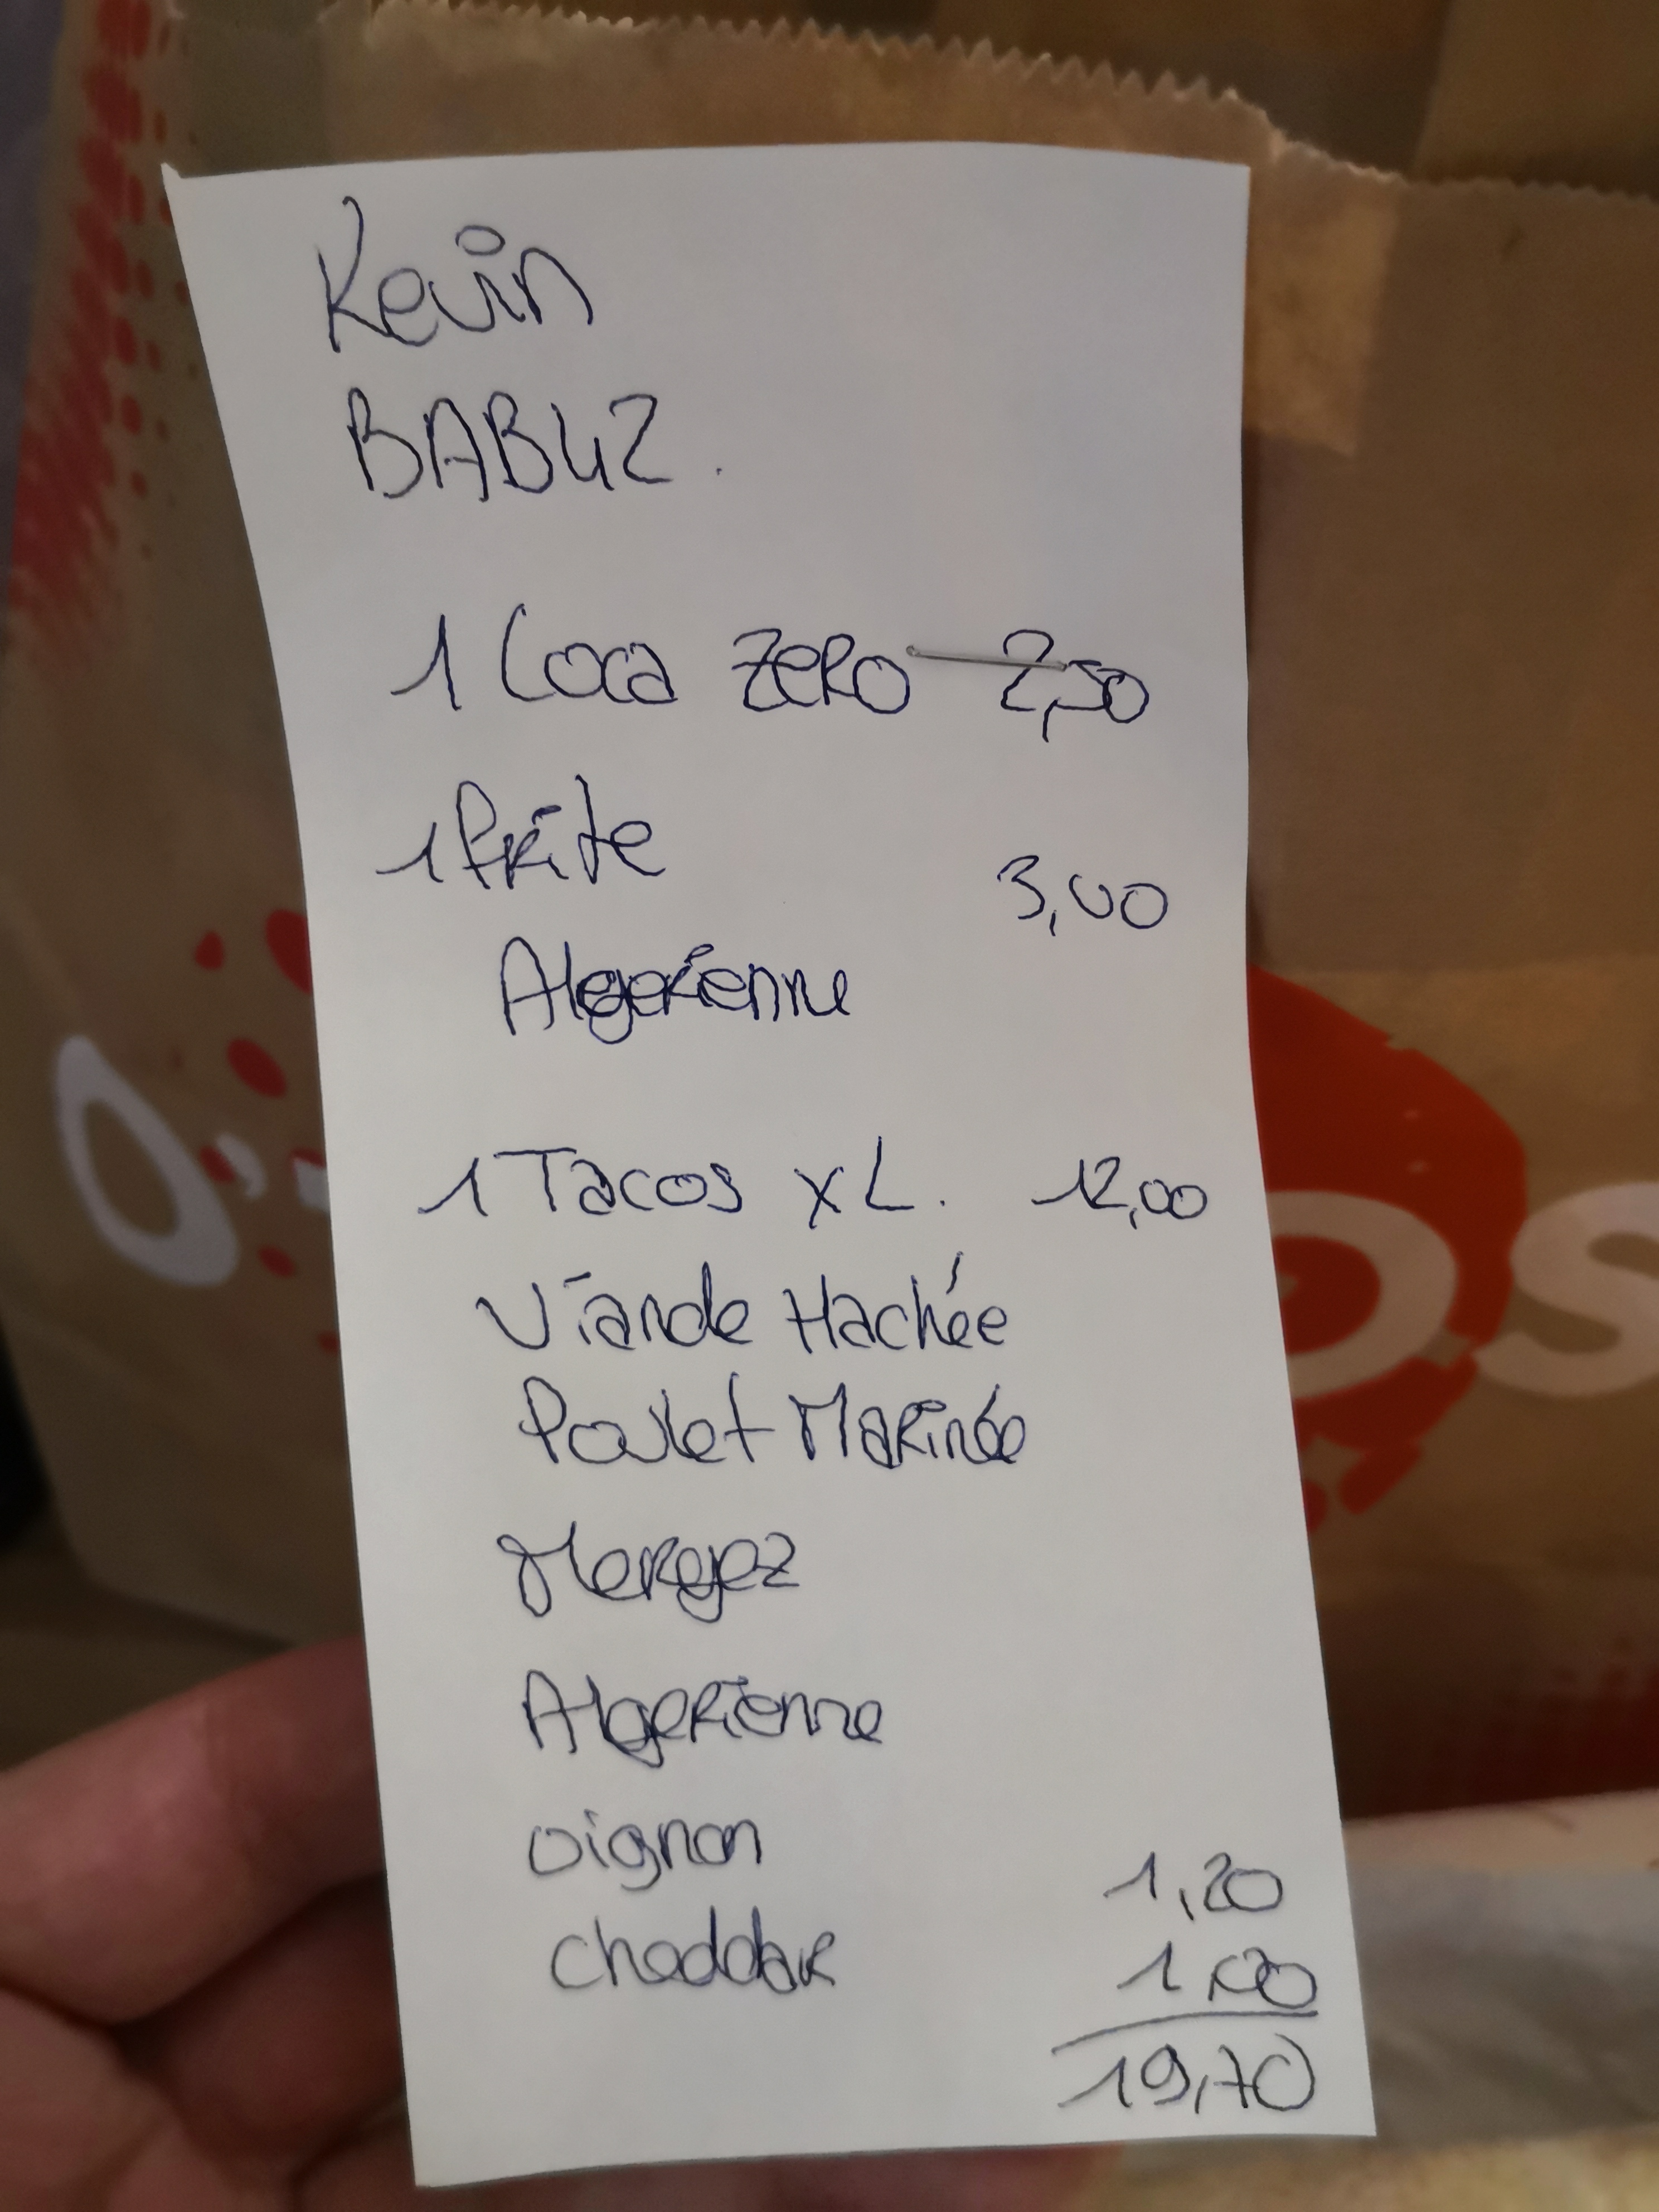 Kevin
BAB42.
1 Coca Zero 2,50
1 frite
3,00
Algerienne
1 Tacos XL. 12,00
Viande Hachée
Poulet Marinée
Merguez
Algerienne
oignon
1,20
cheddar
1,00
19,70
O'
OS